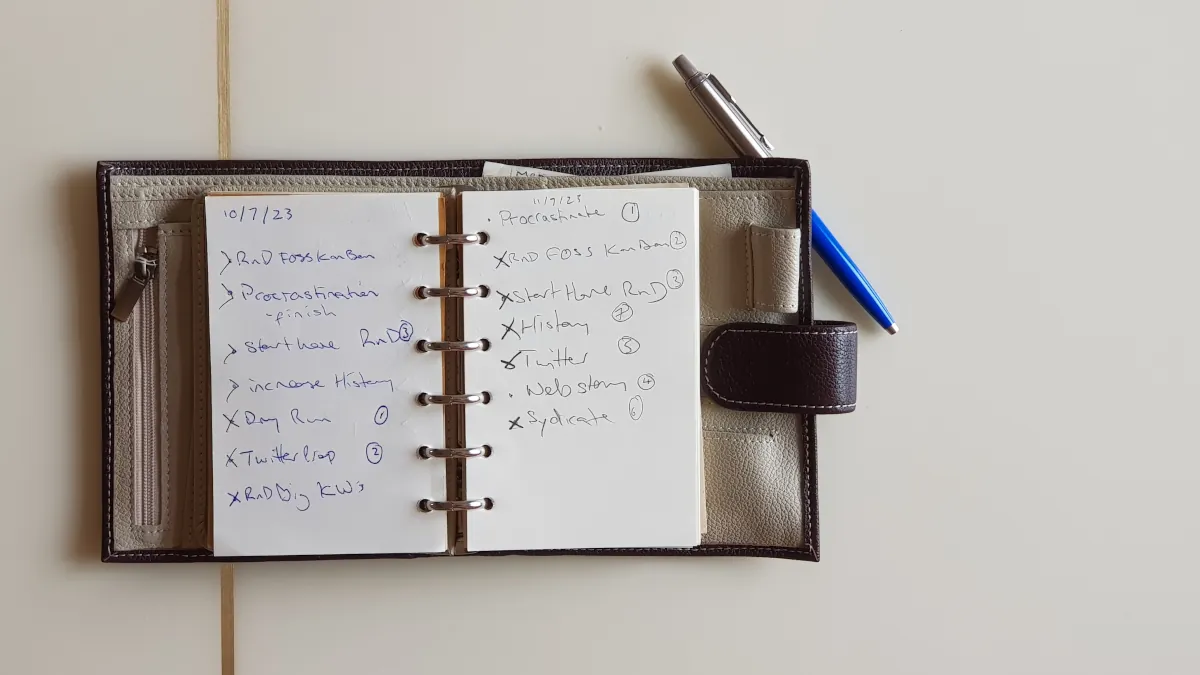 10/7/23
> RnD FOSS KanBan
> Procrastination
- finish
> Start Have RnD ③
> increase History
X Dry Run ①
X Twitter Prep ②
X RnD Big KWs
11/7/23
· Procrastinate ①
X RnD FOSS KanBan ②
X Start Have RnD ③
X History ⑦
X Twitter ⑤
· Web story ④
X Sydicate ⑥